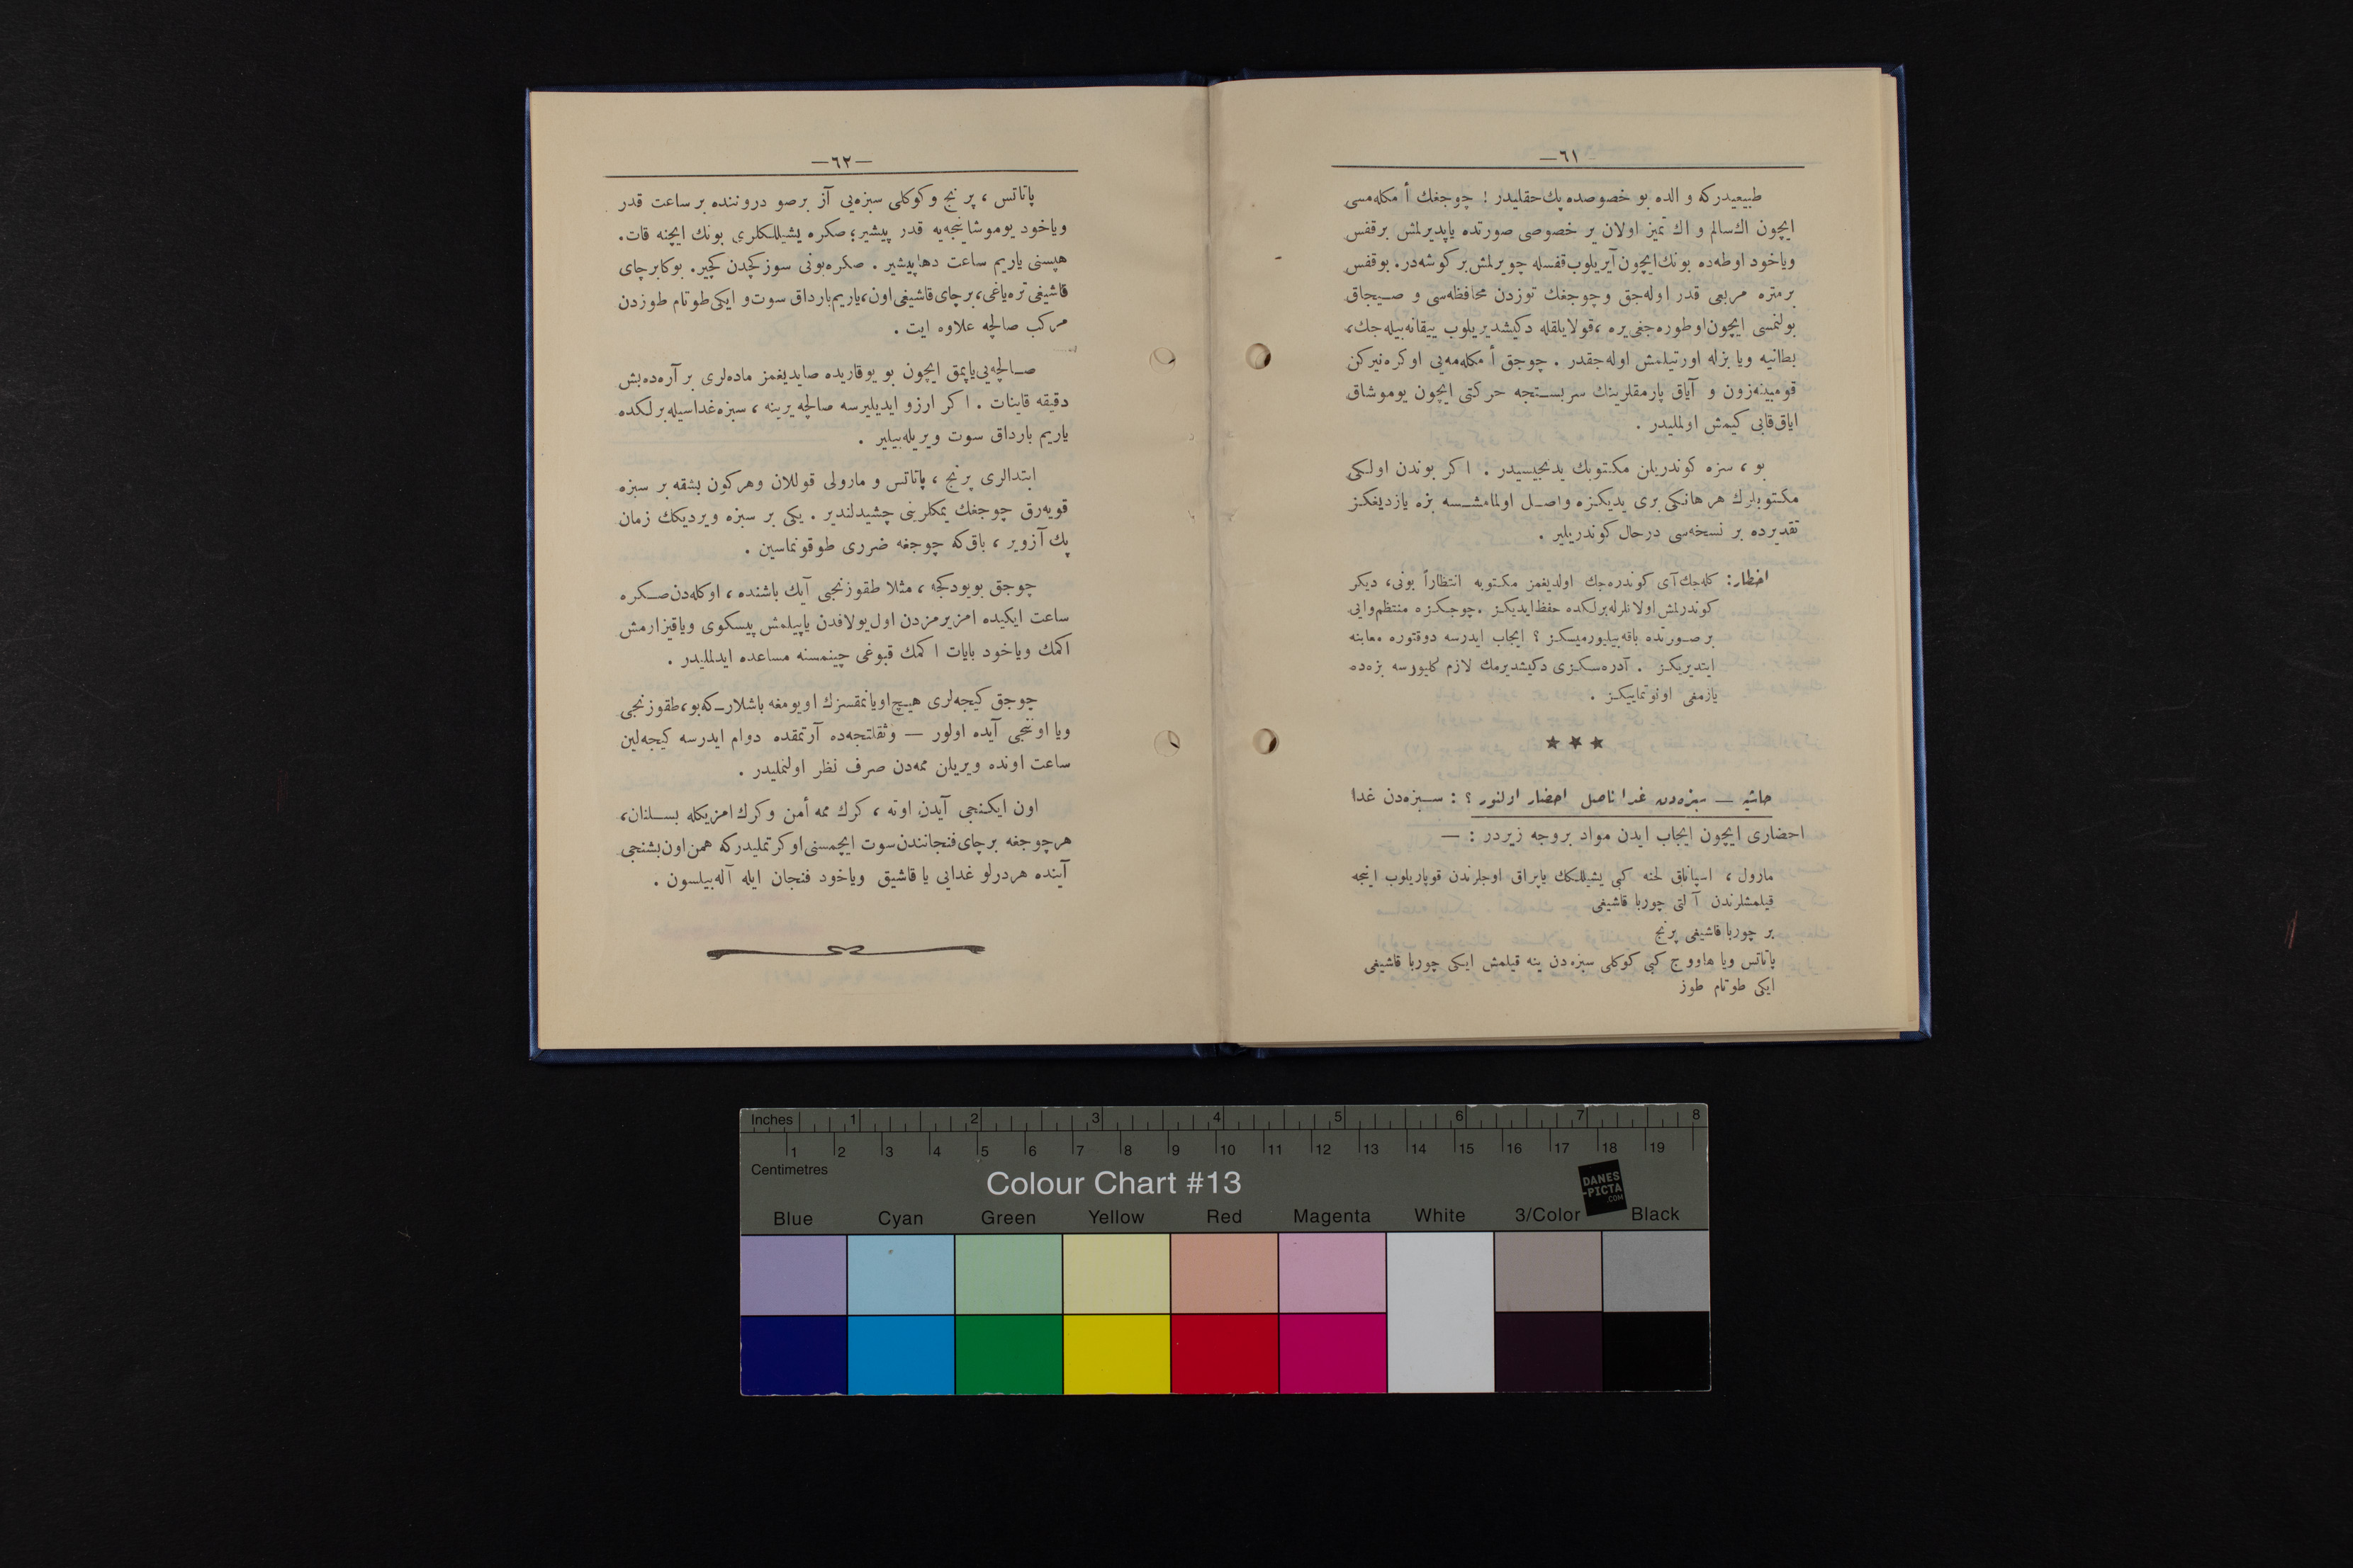 —٦١—
طبیعیدرکه والده بو خصوصده پك حقلیدر ! چوجغك أمکله‌مسی
ایچون اك سالم و اك تمیز اولان بر خصوصی صورتده یاپدیرلمش بر قفس
ویاخود اوطه‌ده بونك ایچون آیریلوب قفسله چویرلمش بر کوشه‌در . بو قفس
بر متره مربعی قدر اوله‌جق وچوجغك توزدن محافظه‌سی و صیجاق
بولنمسی ایچون اوطوره‌جغی یره ، قولایلقله دکیشدیریلوب ییقانه‌بیله‌جك ،
بطانیه ویا بزله اورتیلمش اوله‌جقدر . چوجق أمکله‌مه‌یی اوکره‌نیرکن
قومبینه‌زون و آیاق پارمقلرینك سربستجه حرکتی ایچون یوموشاق
ایاق‌قابی کیمش اولملیدر .
بو ، سزه کوندریلن مکتوبك یدنجیسیدر . اکر بوندن اولکی
مکتوبلرك هر هانکی بری یدیکزه واصل اولمامشسه بزه یازدیغکز
تقدیرده بر نسخه‌سی درحال کوندریلیر .
اخطار: کله‌جك آی کوندره‌جك اولدیغمز مکتوبه انتظاراً بونی ، دیکر
کوندرلمش اولانلرله برلکده حفظ ایدیکز . چوجکزه منتظم وایی
بر صورتده باقه‌بیلیورمیسکز ؟ ایجاب ایدرسه دوقتوره معاینه
ایتدیریکز . آدره‌سکزی دکیشدیرمك لازم کلیورسه بزه‌ده
یازمغی اونوتماییکز .
★ ★ ★
حاشیه — سبزه‌دن غدا ناصل احضار اولنور ؟ : سبزه‌دن غدا
احضاری ایچون ایجاب ایدن مواد بروجه زیردر : —
مارول ، اسپاناق لحنه کبی یشیللکك یاپراق اوجلرندن قوپاریلوب اینجه
قیلمشلرندن آلتی چوربا قاشیغی
بر چوربا قاشیغی پرنج
پاتاتس ویا هاووج کبی کوکلی سبزه‌دن ینه قیلمش ایکی چوربا قاشیغی
ایکی طوتام طوز
—٦٢—
پاتاتس ، پرنج وکوکلی سبزه‌یی آز برصو دروننده بر ساعت قدر
ویاخود یوموشاینجه‌یه قدر پیشیر ؛ صکره یشیللکلری بونك ایچنه قات .
هپسنی یاریم ساعت دها پیشیر . صکره بونی سوزکچدن کچیر . بوکا بر چای
قاشیغی تره‌یاغی ، بر چای قاشیغی اون ، یاریم بارداق سوت و ایکی طوتام طوزدن
مرکب صالچه علاوه ایت .
صالچه‌یی یاپمق ایچون بو یوقاریده صایدیغمز ماده‌لری بر آره‌ده بش
دقیقه قاینات . اکر ارزو ایدیلیرسه صالچه یرینه ، سبزه غداسیله برلکده
یاریم بارداق سوت ویریله‌بیلیر .
ابتدالری پرنج ، پاتاتس و مارولی قوللان وهرکون بشقه بر سبزه
قویه‌رق چوجغك یمکلرینی چشیدلندیر . یکی بر سبزه ویردیکك زمان
پك آز ویر ، باق‌که چوجغه ضرری طوقونماسین .
چوجق بویودکجه ، مثلا طقوزنجی آیك باشنده ، اوکله‌دن صکره
ساعت ایکیده امزیرمزدن اول یولافدن یاپیلمش پیسکوی ویا قیزارمش
اکمك ویاخود بایات اکمك قبوغی چینمسنه مساعده ایدلملیدر .
چوجق کیجه‌لری هیچ اویانمقسزك اویومغه باشلار ـ که بو ، طقوزنجی
ویا اوننجی آیده اولور — وثقلتجه‌ده آرتمقده دوام ایدرسه کیجه‌لین
ساعت اونده ویریلن ممه‌دن صرف نظر اولنملیدر .
اون ایکنجی آیدن اوته ، کرك ممه أمن وکرك امزیکله بسلنان ،
هرچوجغه بر چای فنجانندن سوت ایچمسنی اوکرتملیدرکه همن اون بشنجی
آینده هردرلو غدایی یا قاشیق ویاخود فنجان ایله آله‌بیلسون .
Inches 1 2 3 4 5 6 7 8
1 2 3 4 5 6 7 8 9 10 11 12 13 14 15 16 17 18 19
Centimetres
Colour Chart #13
DANES
-PICTA
.COM
Blue Cyan Green Yellow Red Magenta White 3/Color Black